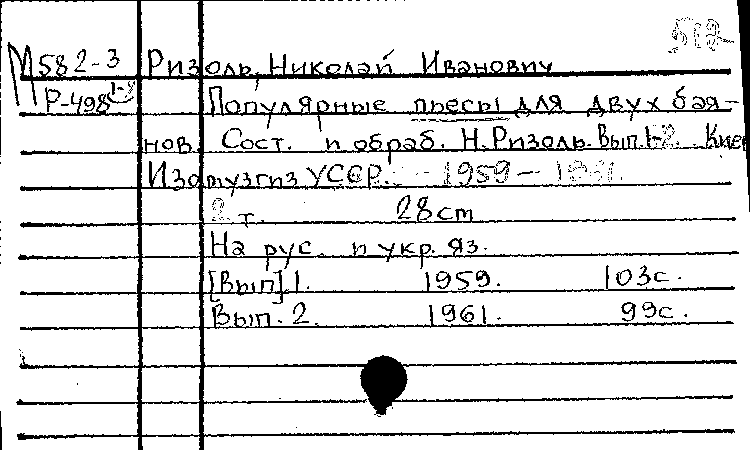 М582-3 Ризоль, Николай Иванович
Р-498 1-2
Популярные пьесы для двух бая-
нов. Сост. и обраб. Н. Ризоль. Вып. 1-2. Киев
Изомузгиз УССР. 1959 - 1961.
2 т. 28 cm
На рус. и укр. яз.
[Вып]. 1. 1959. 103с.
Вып. 2. 1961. 99с.